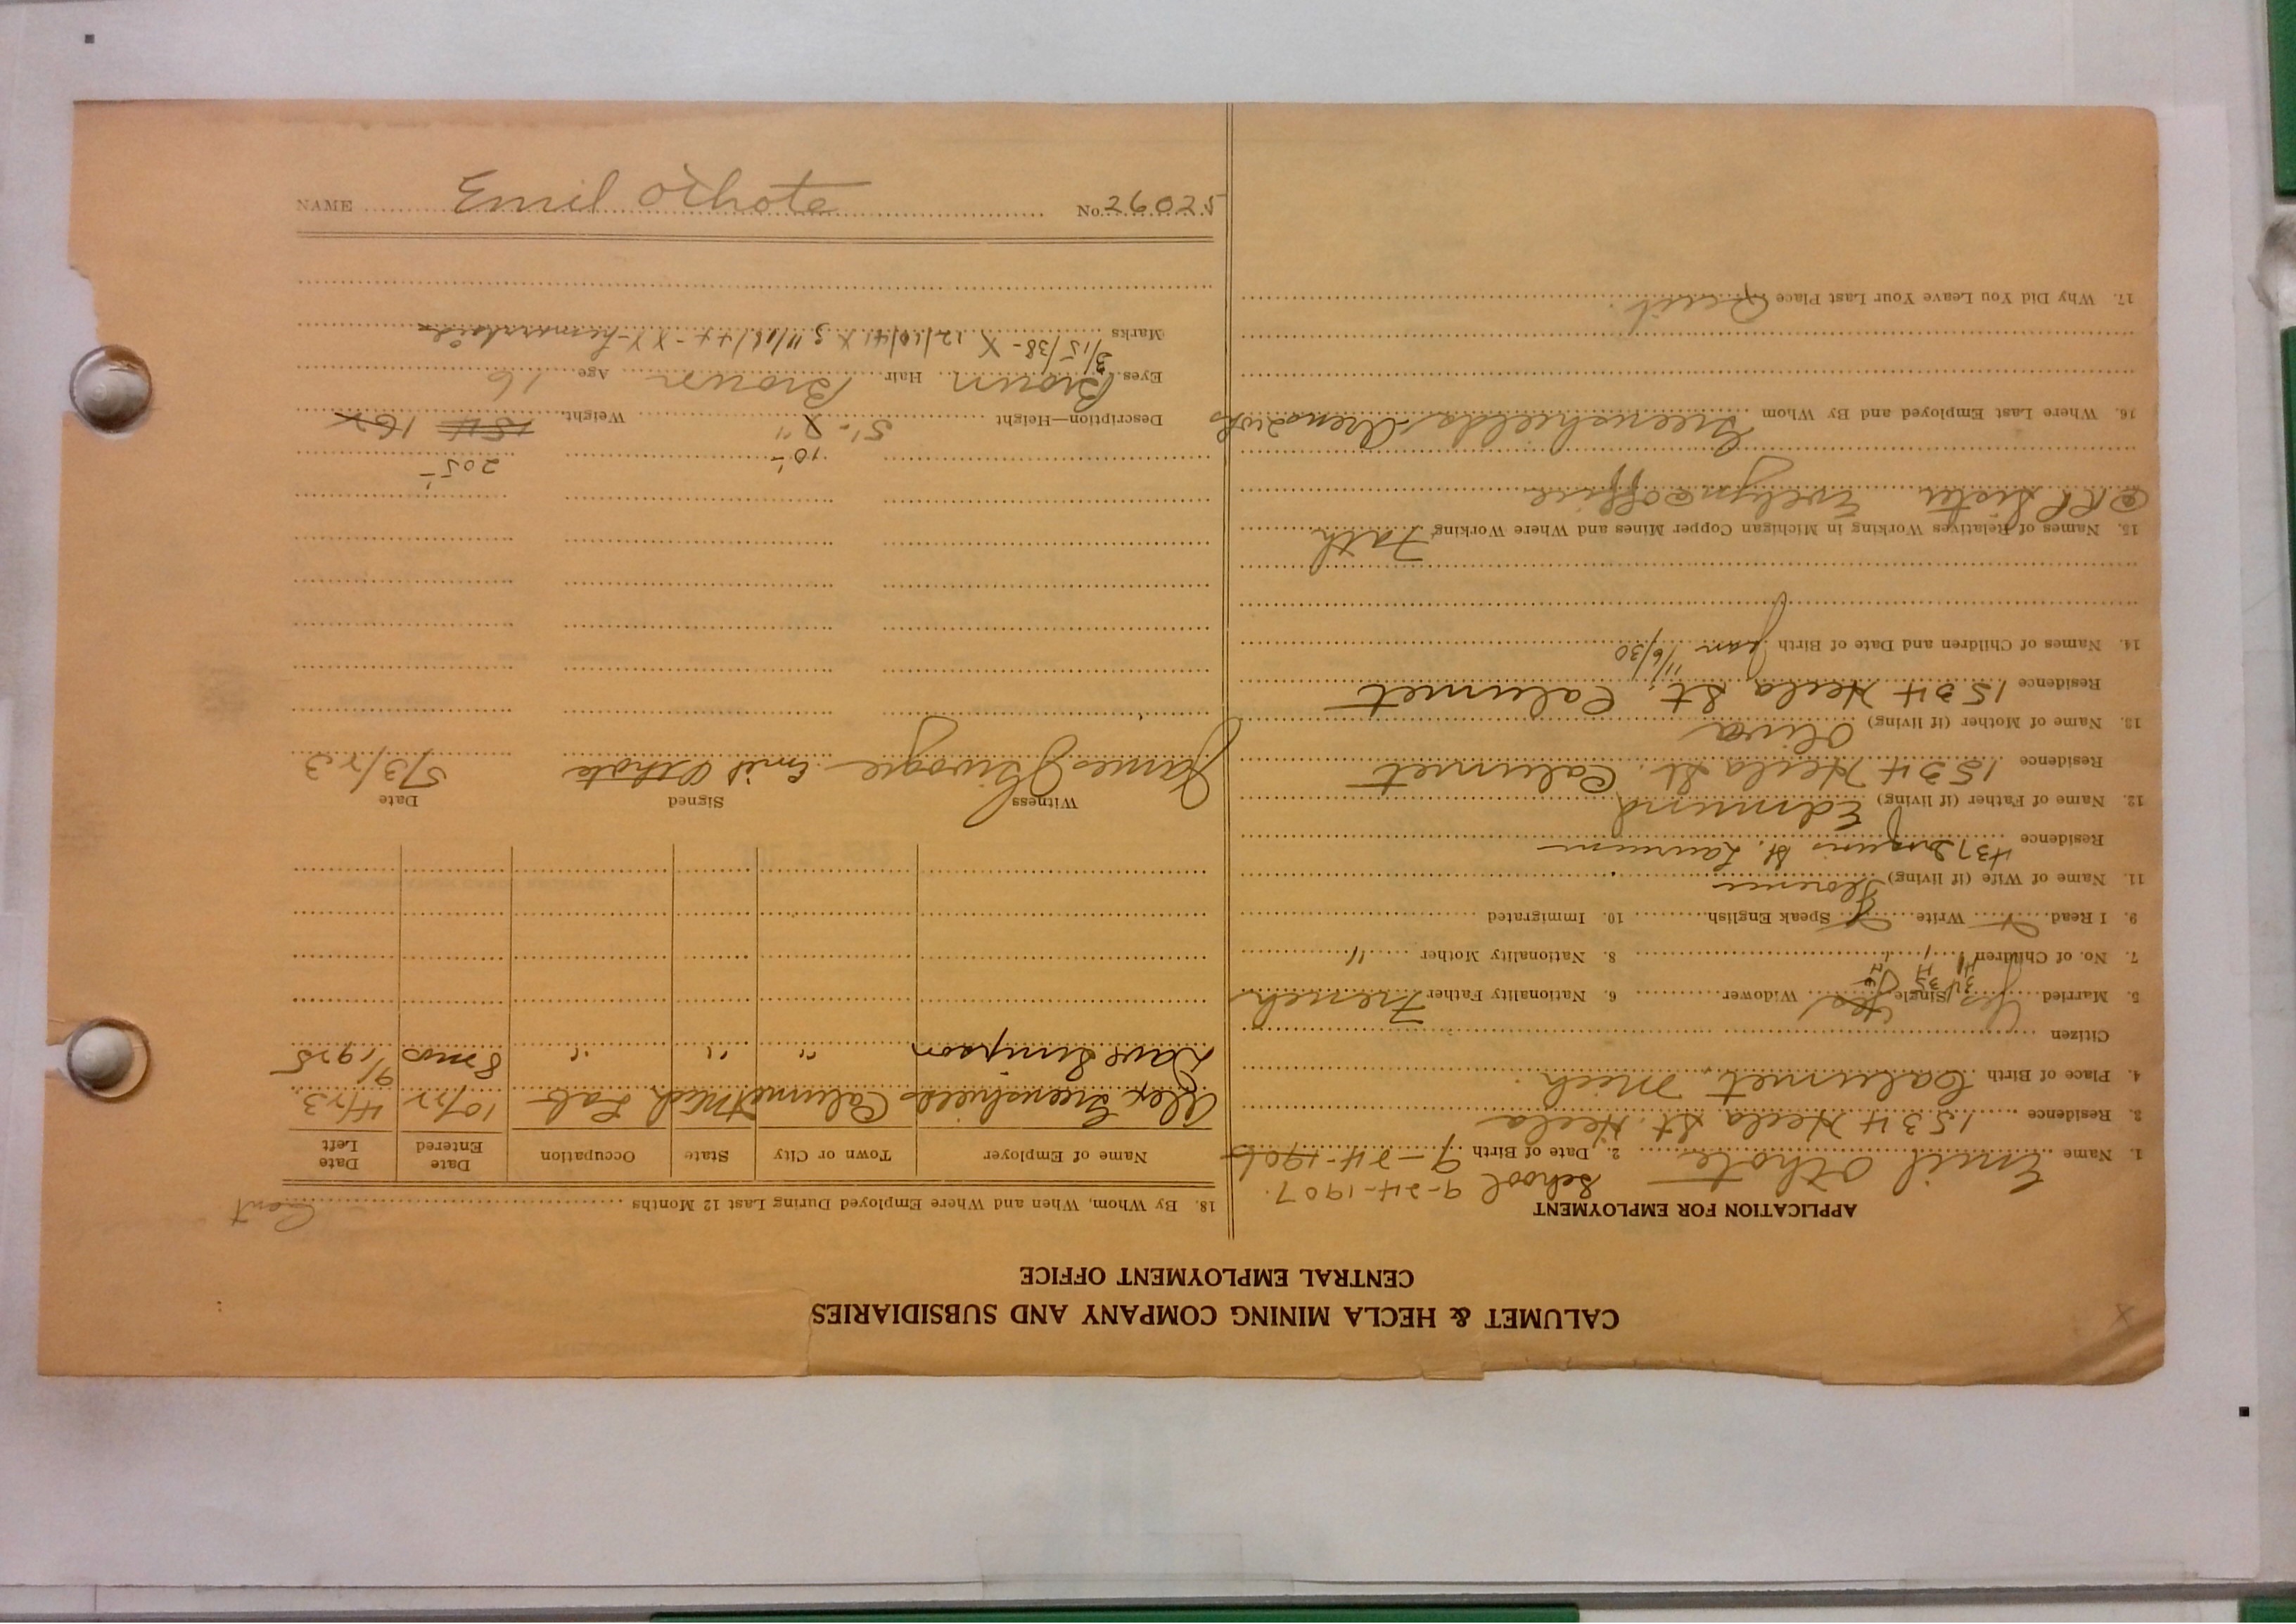 CALUMET & HECLA MINING COMPANY AND SUBSIDIARIES
CENTRAL EMPLOYMENT OFFICE
APPLICATION FOR EMPLOYMENT
School 9-24-1907.
1. Name Emil Othote 2. Date of Birth 9-24-1906
3. Residence 1534 Hecla St. Hecla
4. Place of Birth Calumet, Mich.
Citizen
5. Married Yes Single Yes Widower 6. Nationality Father French
7. No. of Children 1 8. Nationality Mother "
9. I Read Write Speak English 10. Immigrated
11. Name of Wife (if living) Florence
Residence 437 St. Laurium
12. Name of Father (if living) Edmund
Residence 1534 Hecla St. Calumet
13. Name of Mother (if living) Oliva
Residence 1534 Hecla St. Calumet
14. Names of Children and Date of Birth Jean 11/6/30
15. Names of Relatives Working in Michigan Copper Mines and Where Working Fath
@ RR Sister Evelyn @ Office
16. Where Last Employed and By Whom Greenshields
17. Why Did You Leave Your Last Place Quit.
18. By Whom, When and Where Employed During Last 12 Months
Name of Employer Town or City State Occupation Date Entered Date Left
Alex Greenshields Calumet Mich Lab 10/22 4/23
Dave Simpson " " " 8 mos 9/1925
Witness Signed Date
James Emil Othote 5/3/23
10" 205
Description—Height 5'-8" Weight 154 162
Eyes Brown Hair Brown Age 16
Marks 3/15/38-X 12/10/41 X 9/18/44-XX-hemorrhoids
NAME Emil Othote No. 26025